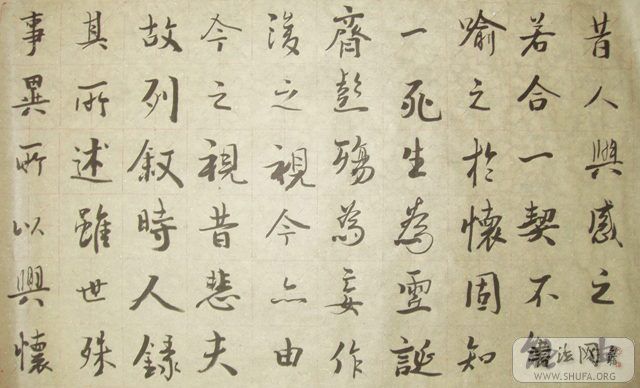 昔人興感之
若合一契不
喻之於懷固知
一死生為虛誕
齊彭殤為妄作
後之視今亦由
今之視昔悲夫
故列敘時人錄
其所述雖世殊
事異所以興懷
WWW.SHUFA.ORG